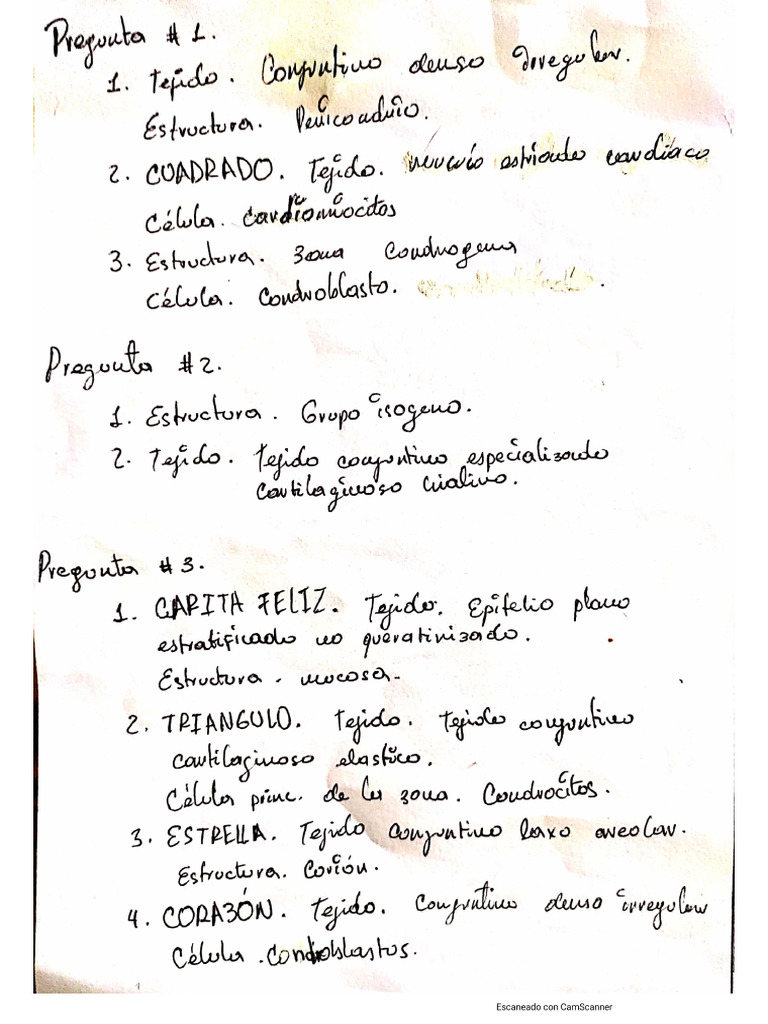 Pregunta # 1.
1. Tejido. Conjuntivo denso irregular.
Estructura. Pericondrio.
2. CUADRADO. Tejido. músculo estriado cardiaco
Célula. Cardiomiocitos
3. Estructura. zona Condrogena
Célula. Condroblasto.
Pregunta #2.
1. Estructura. Grupo isogeno.
2. Tejido. Tejido conjuntivo especializado
cartilaginoso hialino.
Pregunta #3.
1. CARITA FELIZ. Tejido. Epitelio plano
estratificado no queratinizado.
Estructura. mucosa.
2. TRIANGULO. Tejido. Tejido conjuntivo
cartilaginoso elastico.
Célula princ. de la zona. Condrocitos.
3. ESTRELLA. Tejido conjuntivo laxo areolar.
Estructura. Corión.
4. CORAZÓN. Tejido. Conjuntivo denso irregular
Célula. Condroblastos.
Escaneado con CamScanner